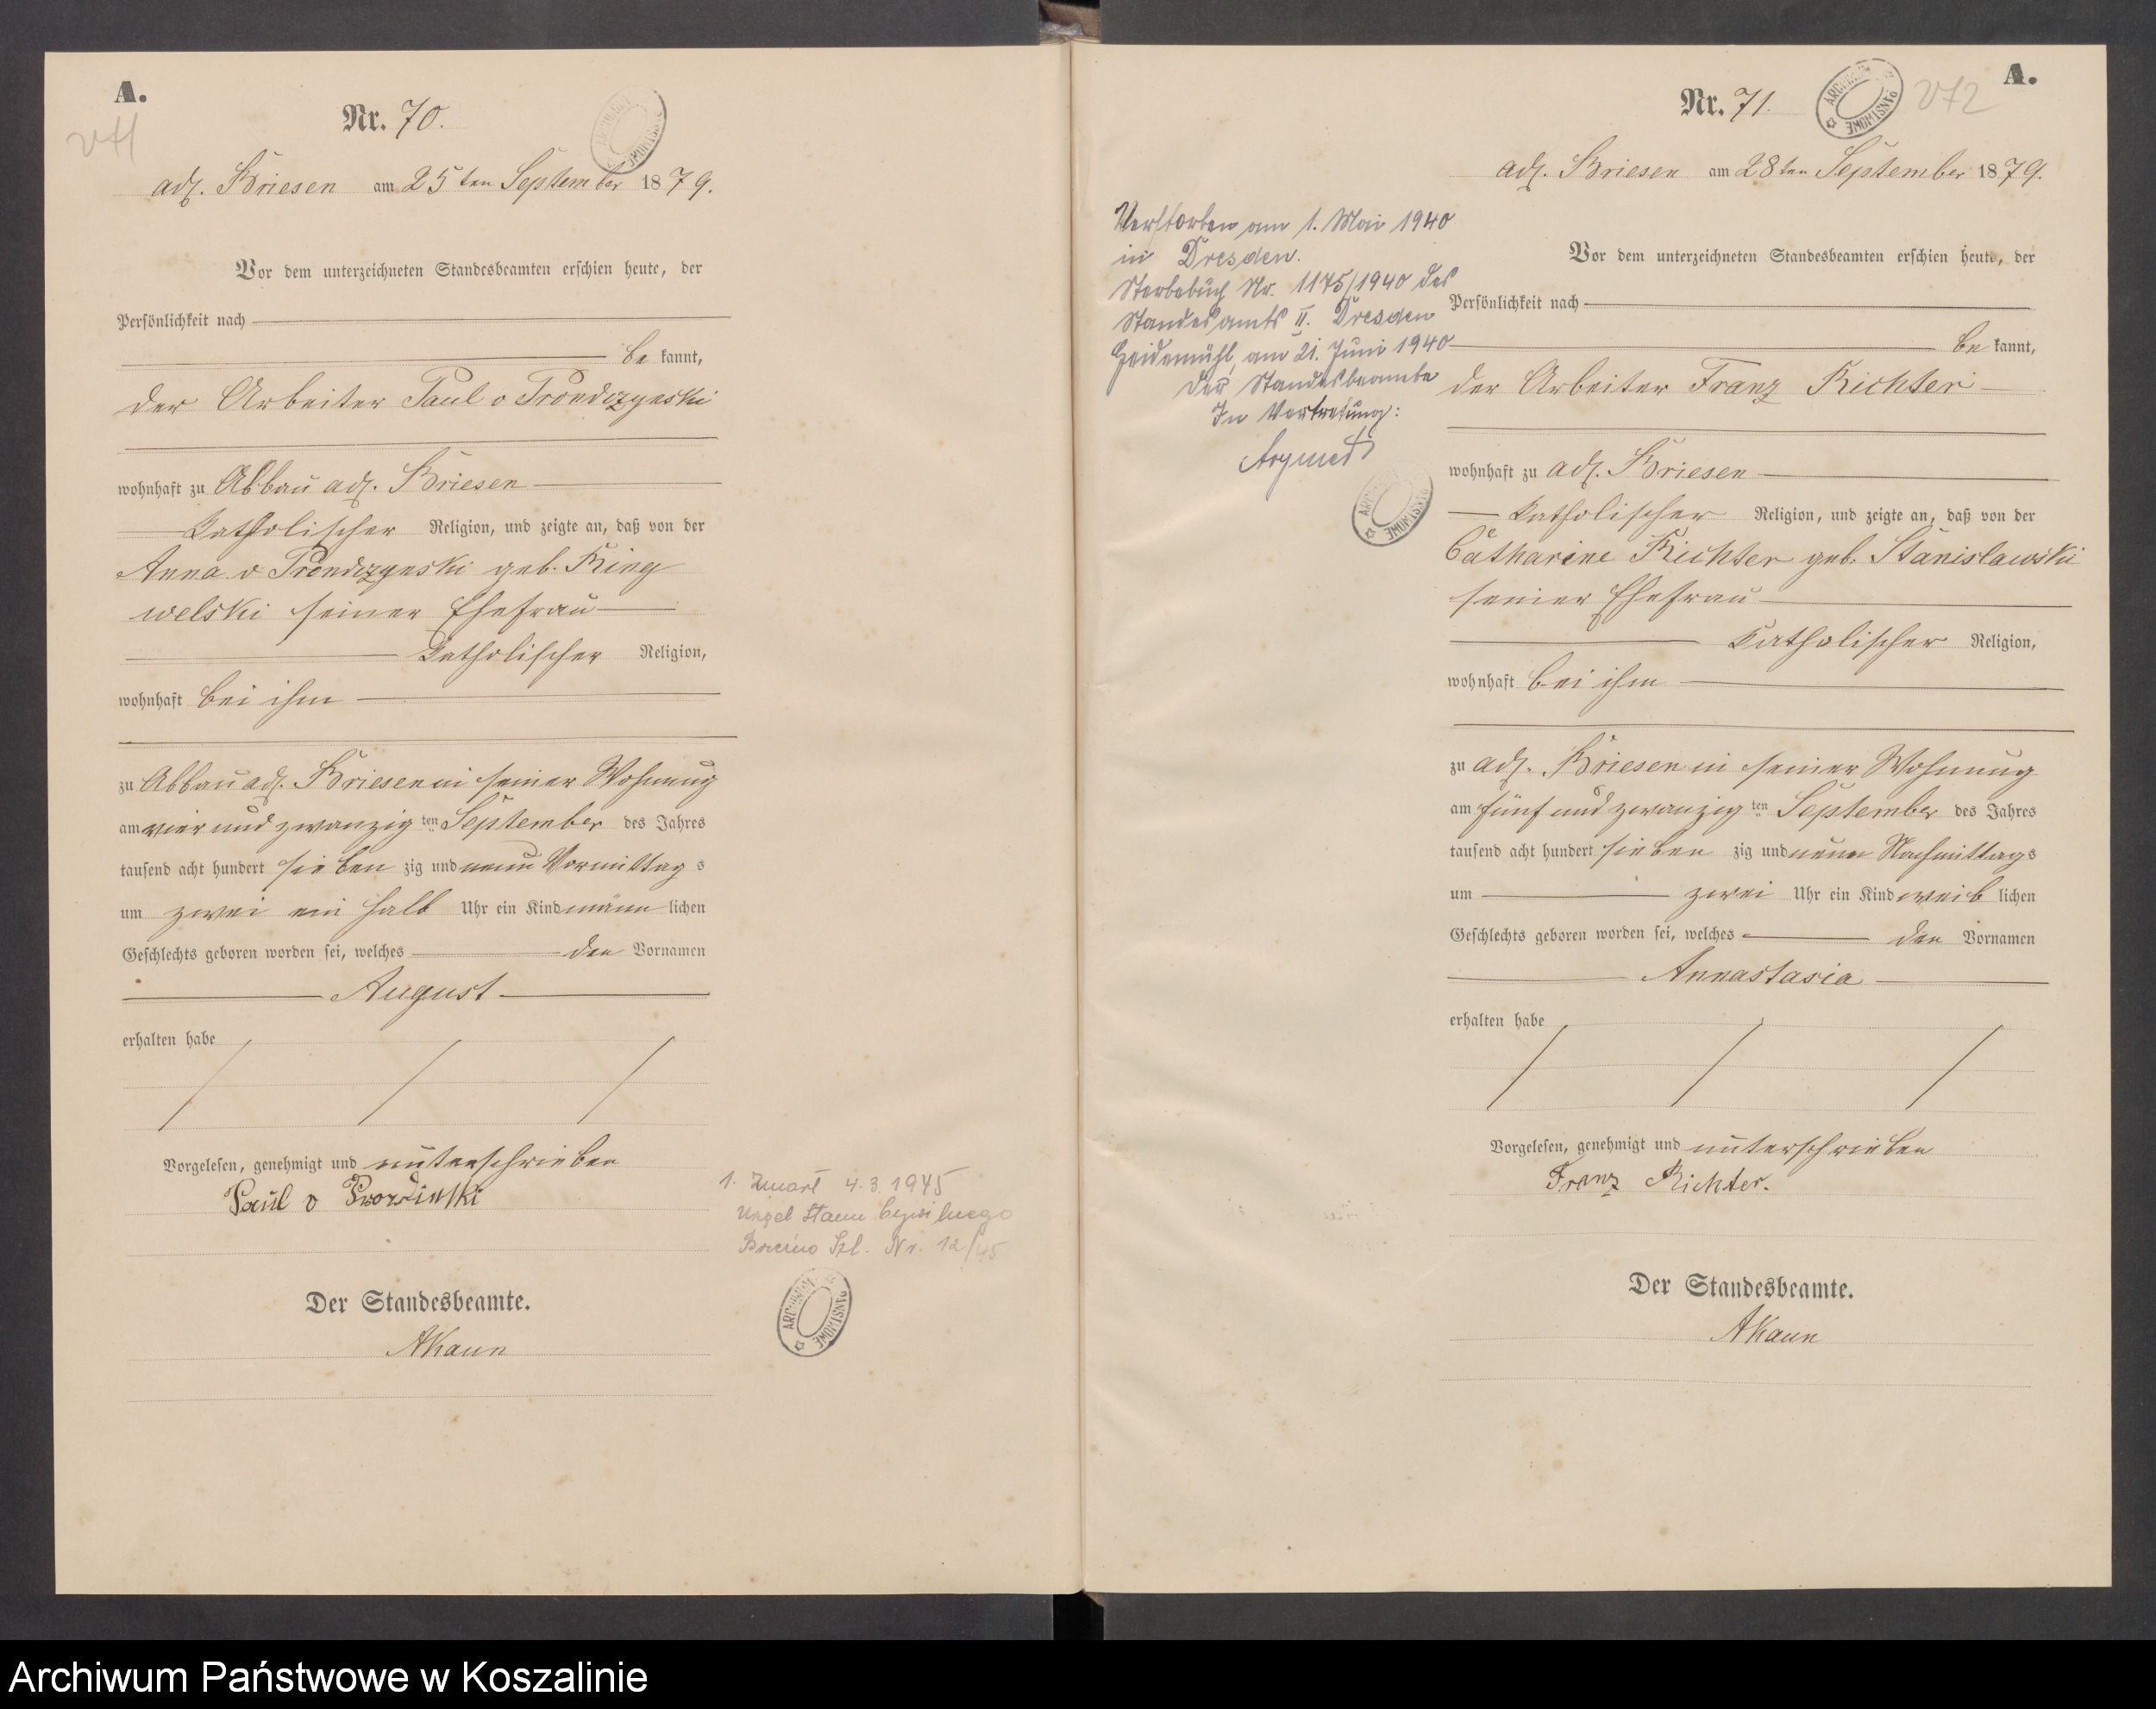 A.
Nr. 70.
adl. Briesen am 25ten September 1879.
Vor dem unterzeichneten Standesbeamten erschien heute, der
Persönlichkeit nach
be kannt,
der Arbeiter Paul v Prondczynski
wohnhaft zu Abbau adl. Briesen
katholischer Religion, und zeigte an, daß von der
Anna v Prondzynski geb. King
welski seiner Ehefrau
katholischer Religion,
wohnhaft bei ihm
zu Abbau adl. Briesen in seiner Wohnung
am vier und zwanzig ten September des Jahres
tausend acht hundert sieben zig und neun Vormittag s
um zwei ein halb Uhr ein Kind männ lichen
Geschlechts geboren worden sei, welches den Vornamen
August
erhalten habe
Vorgelesen, genehmigt und unterschrieben
Paul v
Der Standesbeamte.
AKaun
1. Zmarł 4.3.1945
Urząd Stanu Cywilnego
Nr. 12/45
ARCHIWUM PAŃSTWOWE
A.
Nr. 71.
ARCHIWUM PAŃSTWOWE
adl. Briesen am 28ten September 1879.
Verstorben am 1. Mai 1940
in Dresden.
Sterbebuch Nr. 1175/1940 des
Standesamts II. Dresden
Heidemühl, am 21. Juni 1940
Der Standesbeamte
In Vertretung:
ARCHIWUM PAŃSTWOWE
Vor dem unterzeichneten Standesbeamten erschien heute, der
Persönlichkeit nach
be kannt,
der Arbeiter Franz Richter
wohnhaft zu adl. Briesen
katholischer Religion, und zeigte an, daß von der
Catharine Richter geb. Stanislawski
seiner Ehefrau
katholischer Religion,
wohnhaft bei ihm
zu adl. Briesen in seiner Wohnung
am fünf und zwanzig ten September des Jahres
tausend acht hundert sieben zig und neun Nachmittags
um zwei Uhr ein Kind weib lichen
Geschlechts geboren worden sei, welches den Vornamen
Annastasia
erhalten habe
Vorgelesen, genehmigt und unterschrieben
Franz Richter.
Der Standesbeamte.
AKaun
Archiwum Państwowe w Koszalinie